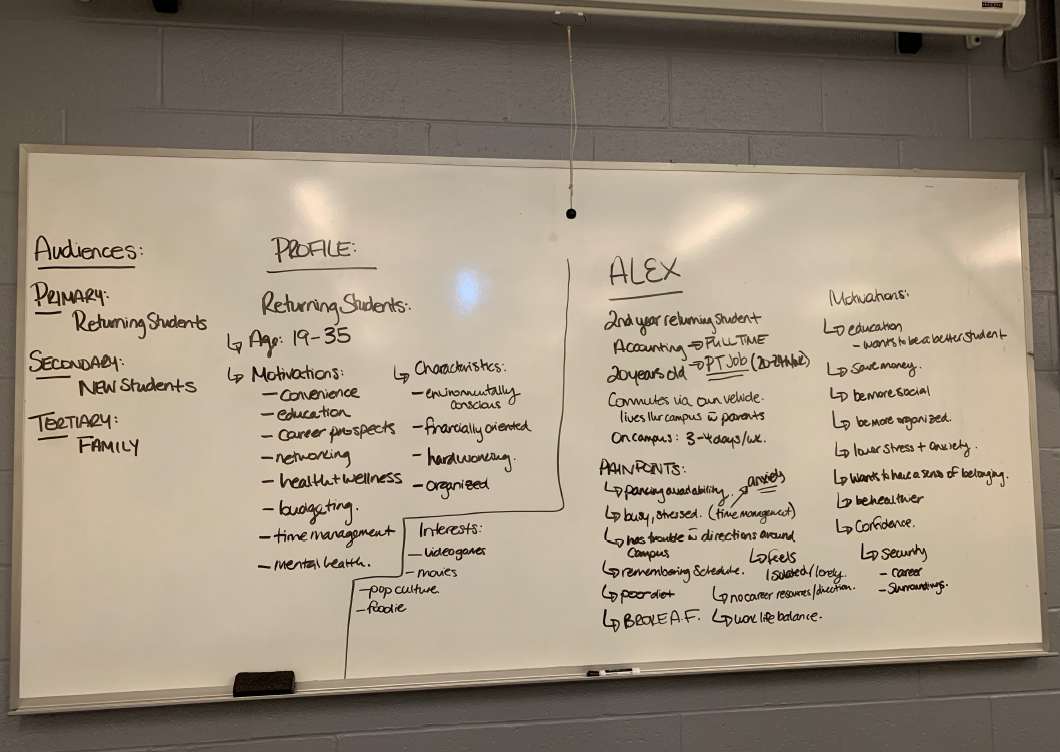 Audiences:
PRIMARY:
Returning Students
SECONDARY:
NEW Students
TERTIARY:
FAMILY
PROFILE:
Returning Students:
↳ Age: 19-35
↳ Motivations:
- convenience
- education
- career prospects
- networking
- health + wellness
- budgeting.
- time management
- mental health.
↳ Characteristics:
- environmentally
conscious
- financially oriented
- hardworking.
- organized
Interests:
- videogames
- movies
- pop culture.
- foodie
ALEX
2nd year returning student
Accounting → FULL TIME
20 years old → PT Job
Commutes via own vehicle.
lives campus w̄ parents
On campus: 3-4 days/wk.
PAIN POINTS:
↳ parking availability.
anxiety
↳ busy, stressed. (time management)
↳ has trouble w̄ directions around
campus
↳ feels
isolated/lonely.
↳ remembering schedule.
↳ poor diet
↳ no career resources/direction.
↳ BROKE A.F.
↳ work life balance.
Motivations:
↳ education
- wants to be a better student
↳ save money.
↳ be more social
↳ be more organized.
↳ lower stress + anxiety.
↳ wants to have a sense of belonging.
↳ be healthier
↳ Confidence.
↳ security
- career
- surroundings.